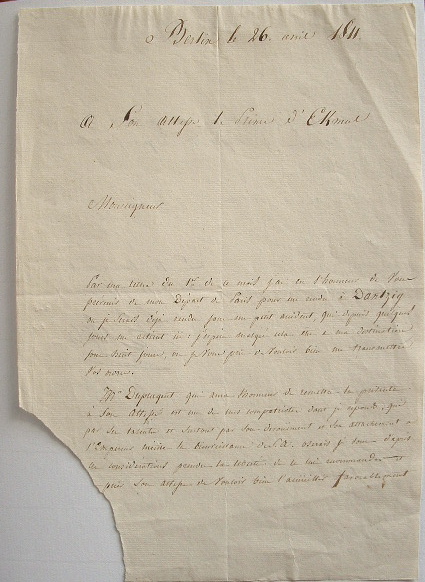 Berlin le 26. avril 1811.
A Son altesse le Prince d'Ekmul
Monseigneur
Par ma lettre du 1er de ce mois j'ai eu l'honneur de Vous
prévenir de mon Départ de Paris pour me rendre à Dantzig
où je serais déjà rendu sans un petit accident, qui depuis quelques
jours me retient
pour huit jours, et je Vous prie de Vouloir bien me transmettre
Vos
Mr qui aura l'honneur de remettre la présente
à Son Altesse est un de mes compatriotes dont je réponds, qui
par ses talents et surtout par son dévouement et son attachement à
l'Empereur mérite la bienveillance de
ces considérations prendre la liberté de le lui recommander et
prier Son altesse de Vouloir bien l'accueillir favorablement